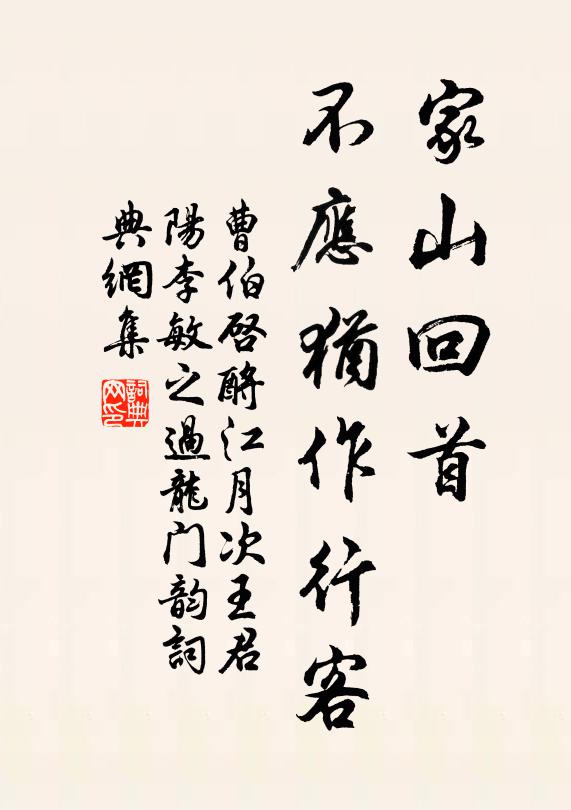 家山回首
不應猶作行客
曹伯啓酹江月次王君
陽李敏之過龍门韵詞
典網集
詞典
网印